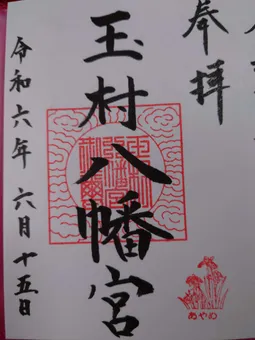 奉拝
玉村八幡宮
令和六年六月十五日
あやめ